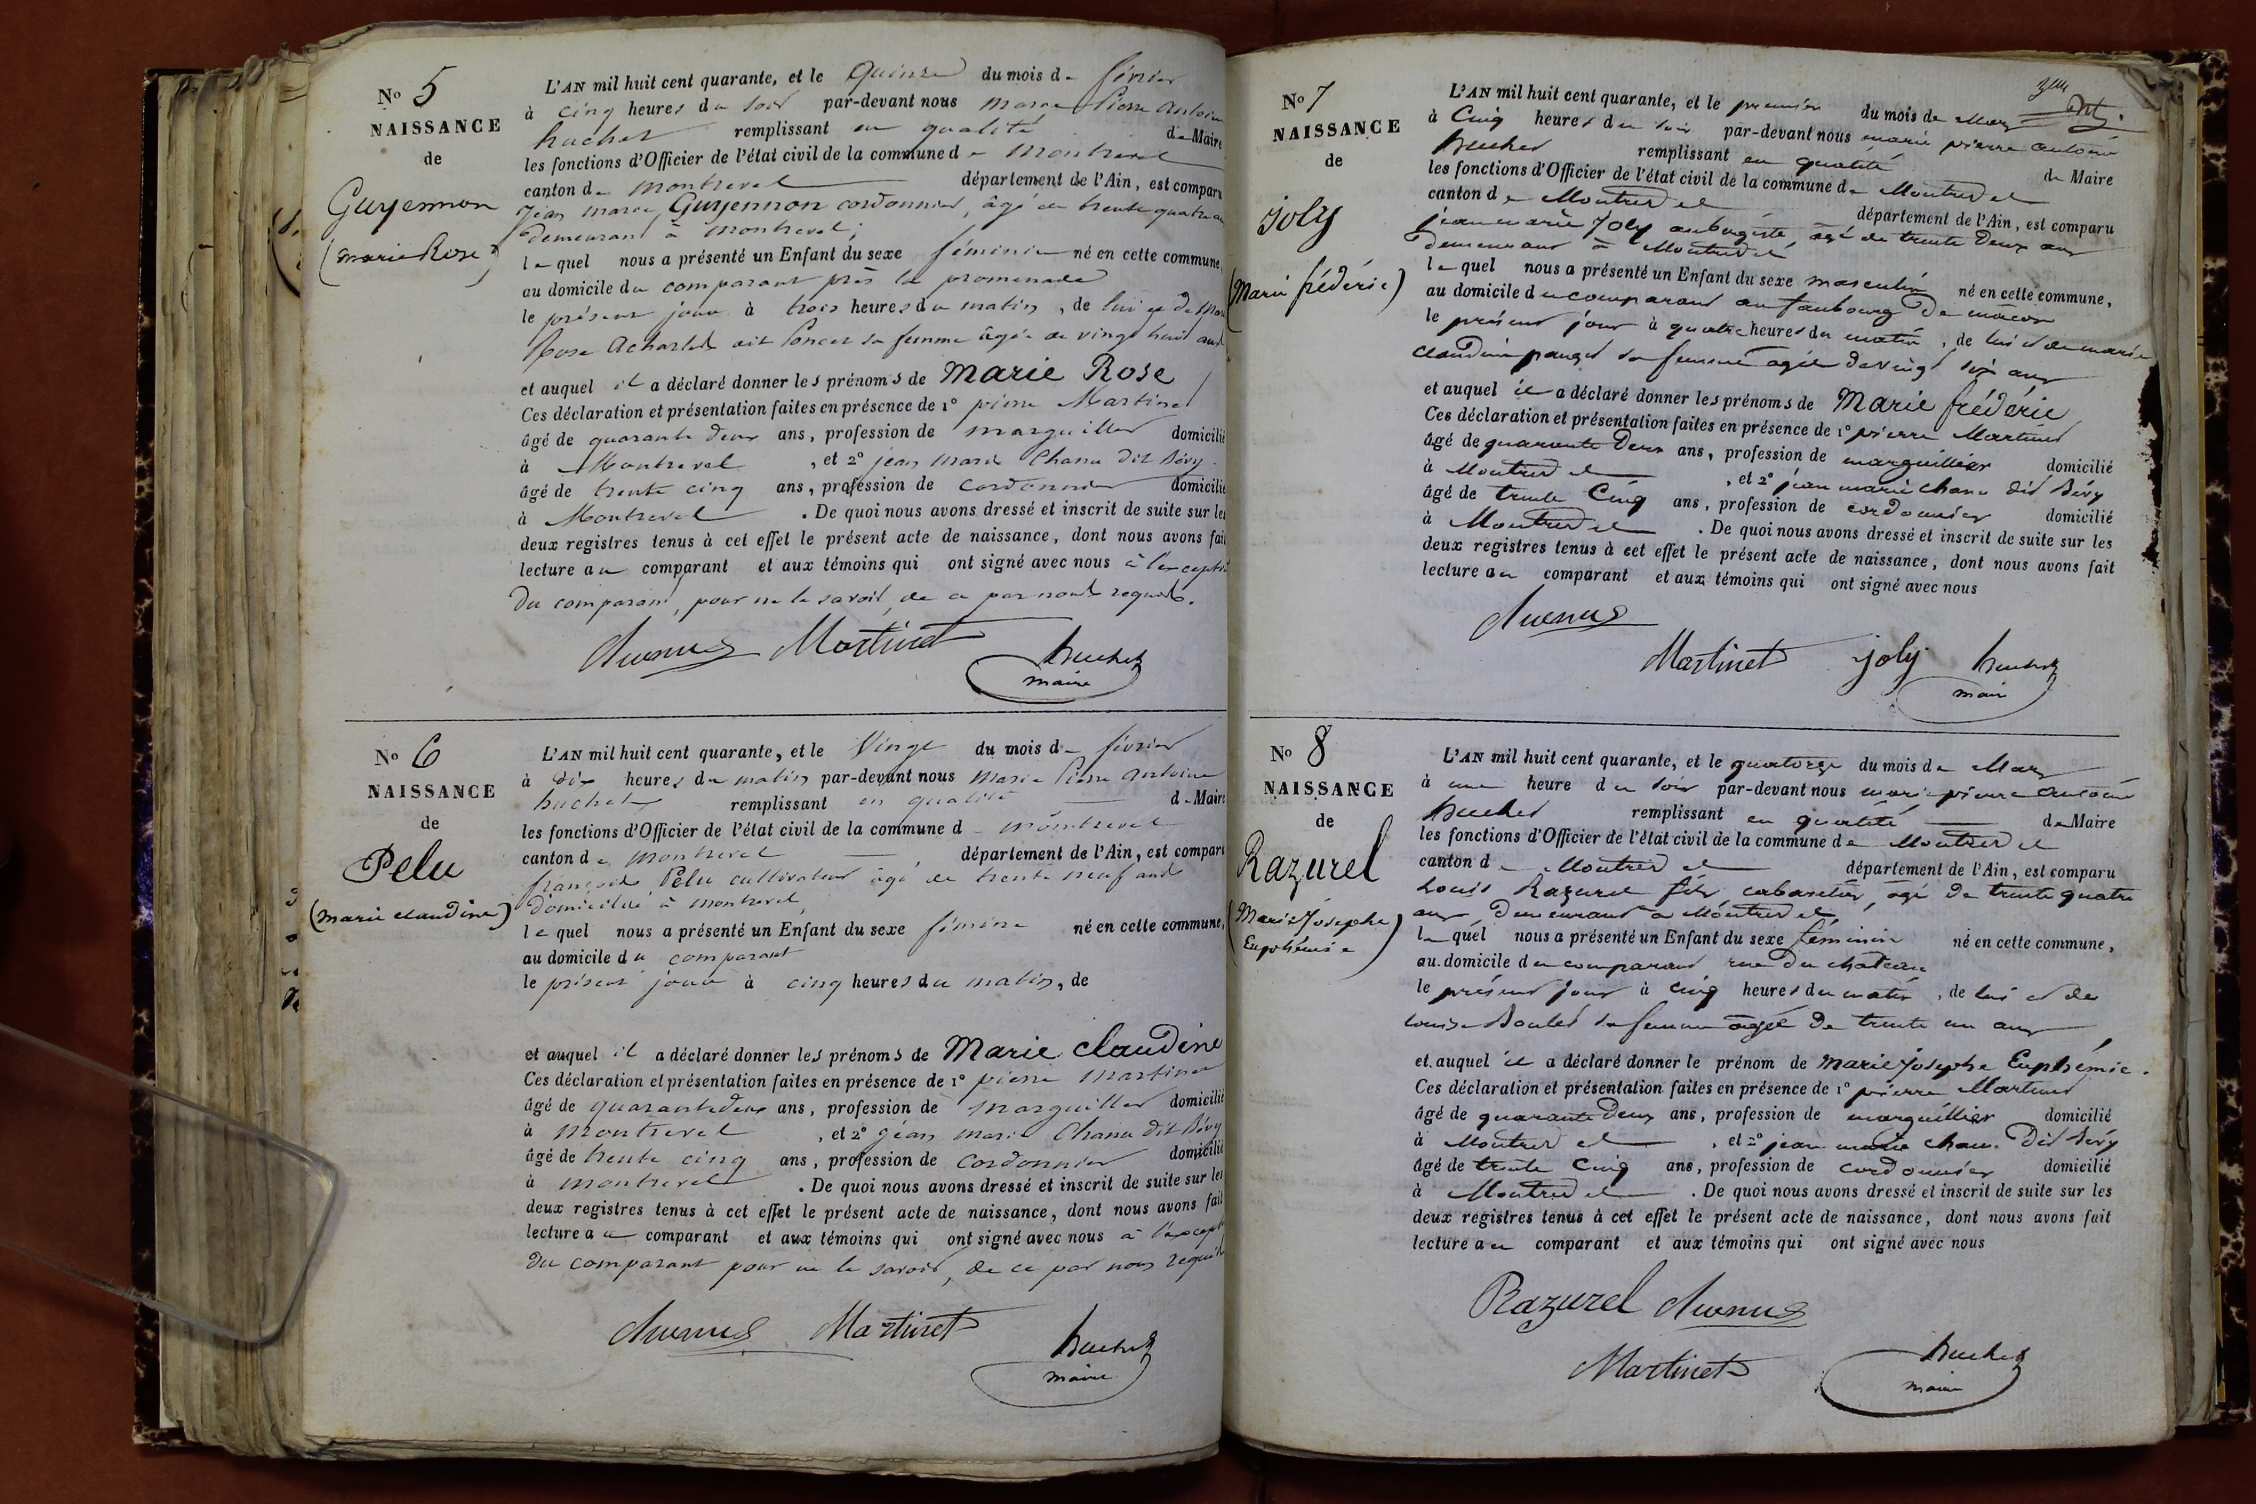 No 5
NAISSANCE
de
Guyennon
(marie Rose)
L'AN mil huit cent quarante, et le quinze du mois de février
à cinq heures du soir par-devant nous marie Pierre antoine
huchet remplissant en qualité de Maire
les fonctions d'Officier de l'état civil de la commune de montrevel
canton de montrevel département de l'Ain, est comparu
Jéan marie Guyennon cordonnier, âgé de trente quatre ans
demeurant à montrevel,
lequel nous a présenté un Enfant du sexe féminin né en cette commune,
au domicile du comparant près la promenade
le présent jour à trois heures du matin, de lui et de
Rose dit Poncet sa femme âgée de vingt huit ans
et auquel il a déclaré donner les prénoms de Marie Rose
Ces déclaration et présentation faites en présence de 1° pierre Martinet
âgé de quarante deux ans, profession de marguillier domicilié
à Montrevel, et 2° jean marie Chanu dit Bévy
âgé de trente cinq ans, profession de cordonnier domicilié
à Montrevel. De quoi nous avons dressé et inscrit de suite sur les
deux registres tenus à cet effet le présent acte de naissance, dont nous avons fait
lecture au comparant et aux témoins qui ont signé avec nous à l'exception
du comparant, pour ne le savoir, de ce par nous requis.
Martinet huchet
maire
No 6
NAISSANCE
de
Pelu
(marie claudine)
L'AN mil huit cent quarante, et le Vingt du mois de février
à dix heures du matin par-devant nous marie Pierre antoine
huchet remplissant en qualité de Maire
les fonctions d'Officier de l'état civil de la commune de montrevel
canton de montrevel département de l'Ain, est comparu
françois Pelu cultivateur âgé de trente neuf ans
domicilié à montrevel,
lequel nous a présenté un Enfant du sexe féminin né en cette commune,
au domicile du comparant
le présent jour à cinq heures du matin, de
et auquel il a déclaré donner les prénoms de Marie claudine
Ces déclaration et présentation faites en présence de 1° pierre martinet
âgé de quarante deux ans, profession de marguillier domicilié
à montrevel, et 2° jéan marie Chanu dit Bévy
âgé de trente cinq ans, profession de cordonnier domicilié
à montrevel. De quoi nous avons dressé et inscrit de suite sur les
deux registres tenus à cet effet le présent acte de naissance, dont nous avons fait
lecture au comparant et aux témoins qui ont signé avec nous à l'exception
du comparant pour ne le savoir, de ce par nous requis
Martinet huchet
maire
No 7
NAISSANCE
de
joly
(Marie frédéric)
L'AN mil huit cent quarante, et le premier du mois de Mars
à Cinq heures du soir par-devant nous marie pierre antoine
huchet remplissant en qualité de Maire
les fonctions d'Officier de l'état civil de la commune de Montrevel
canton de Montrevel département de l'Ain, est comparu
jean marie Joly aubergiste, agé de trente deux ans
demeurant à Montrevel
lequel nous a présenté un Enfant du sexe masculin né en cette commune,
au domicile du comparant au faubourg de macon
le présent jour à quatre heures du matin, de lui et de marie
claudine pauget sa femme agée de vingt six ans
et auquel il a déclaré donner les prénoms de Marie frédéric
Ces déclaration et présentation faites en présence de 1° pierre Martinet
âgé de quarante deux ans, profession de marguillier domicilié
à Montrevel, et 2° jéan marie chanu dit Bévy
âgé de trente Cinq ans, profession de cordonnier domicilié
à Montrevel. De quoi nous avons dressé et inscrit de suite sur les
deux registres tenus à cet effet le présent acte de naissance, dont nous avons fait
lecture au comparant et aux témoins qui ont signé avec nous
Martinet joly huchet
maire
No 8
NAISSANCE
de
Razurel
(Marie Josephe
Euphémie)
L'AN mil huit cent quarante, et le quatorze du mois de Mars
à une heure du soir par-devant nous marie pierre antoine
huchet remplissant en qualité de Maire
les fonctions d'Officier de l'état civil de la commune de Montrevel
canton de Montrevel département de l'Ain, est comparu
Louis Razurel fils, cabaretier, agé de trente quatre
ans, demeurant à Montrevel,
lequel nous a présenté un Enfant du sexe féminin né en cette commune,
au domicile du comparant rue du chateau
le présent jour à cinq heures du matin, de lui et de
Louise Boulet sa femme agée de trente un ans
et auquel il a déclaré donner le prénom de marie Josephe Euphémie.
Ces déclaration et présentation faites en présence de 1° pierre Martinet
âgé de quarante deux ans, profession de marguillier domicilié
à Montrevel, et 2° jean marie chanu dit Bévy
âgé de trente Cinq ans, profession de cordonnier domicilié
à Montrevel. De quoi nous avons dressé et inscrit de suite sur les
deux registres tenus à cet effet le présent acte de naissance, dont nous avons fait
lecture au comparant et aux témoins qui ont signé avec nous
Razurel
Martinet huchet
maire